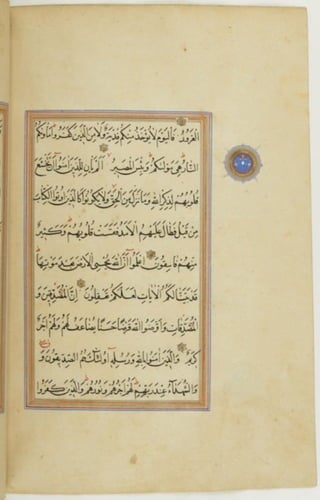 الغرور فاليوم لا يؤخذ منكم فدية ولا من الذين كفروا مأويكم
النار هي موليكم وبئس المصير ألم يأن للذين آمنوا أن تخشع
قلوبهم لذكر الله وما نزل من الحق ولا يكونوا كالذين أوتوا الكتاب
من قبل فطال عليهم الأمد فقست قلوبهم وكثير
منهم فاسقون اعلموا أن الله يحيي الأرض بعد موتها
قد بينا لكم الآيات لعلكم تعقلون إن المصدقين و
المصدقات وأقرضوا الله قرضا حسنا يضاعف لهم ولهم أجر
كريم والذين آمنوا بالله ورسله أولئك هم الصديقون و
والشهداء عند ربهم لهم أجرهم ونورهم والذين كفروا